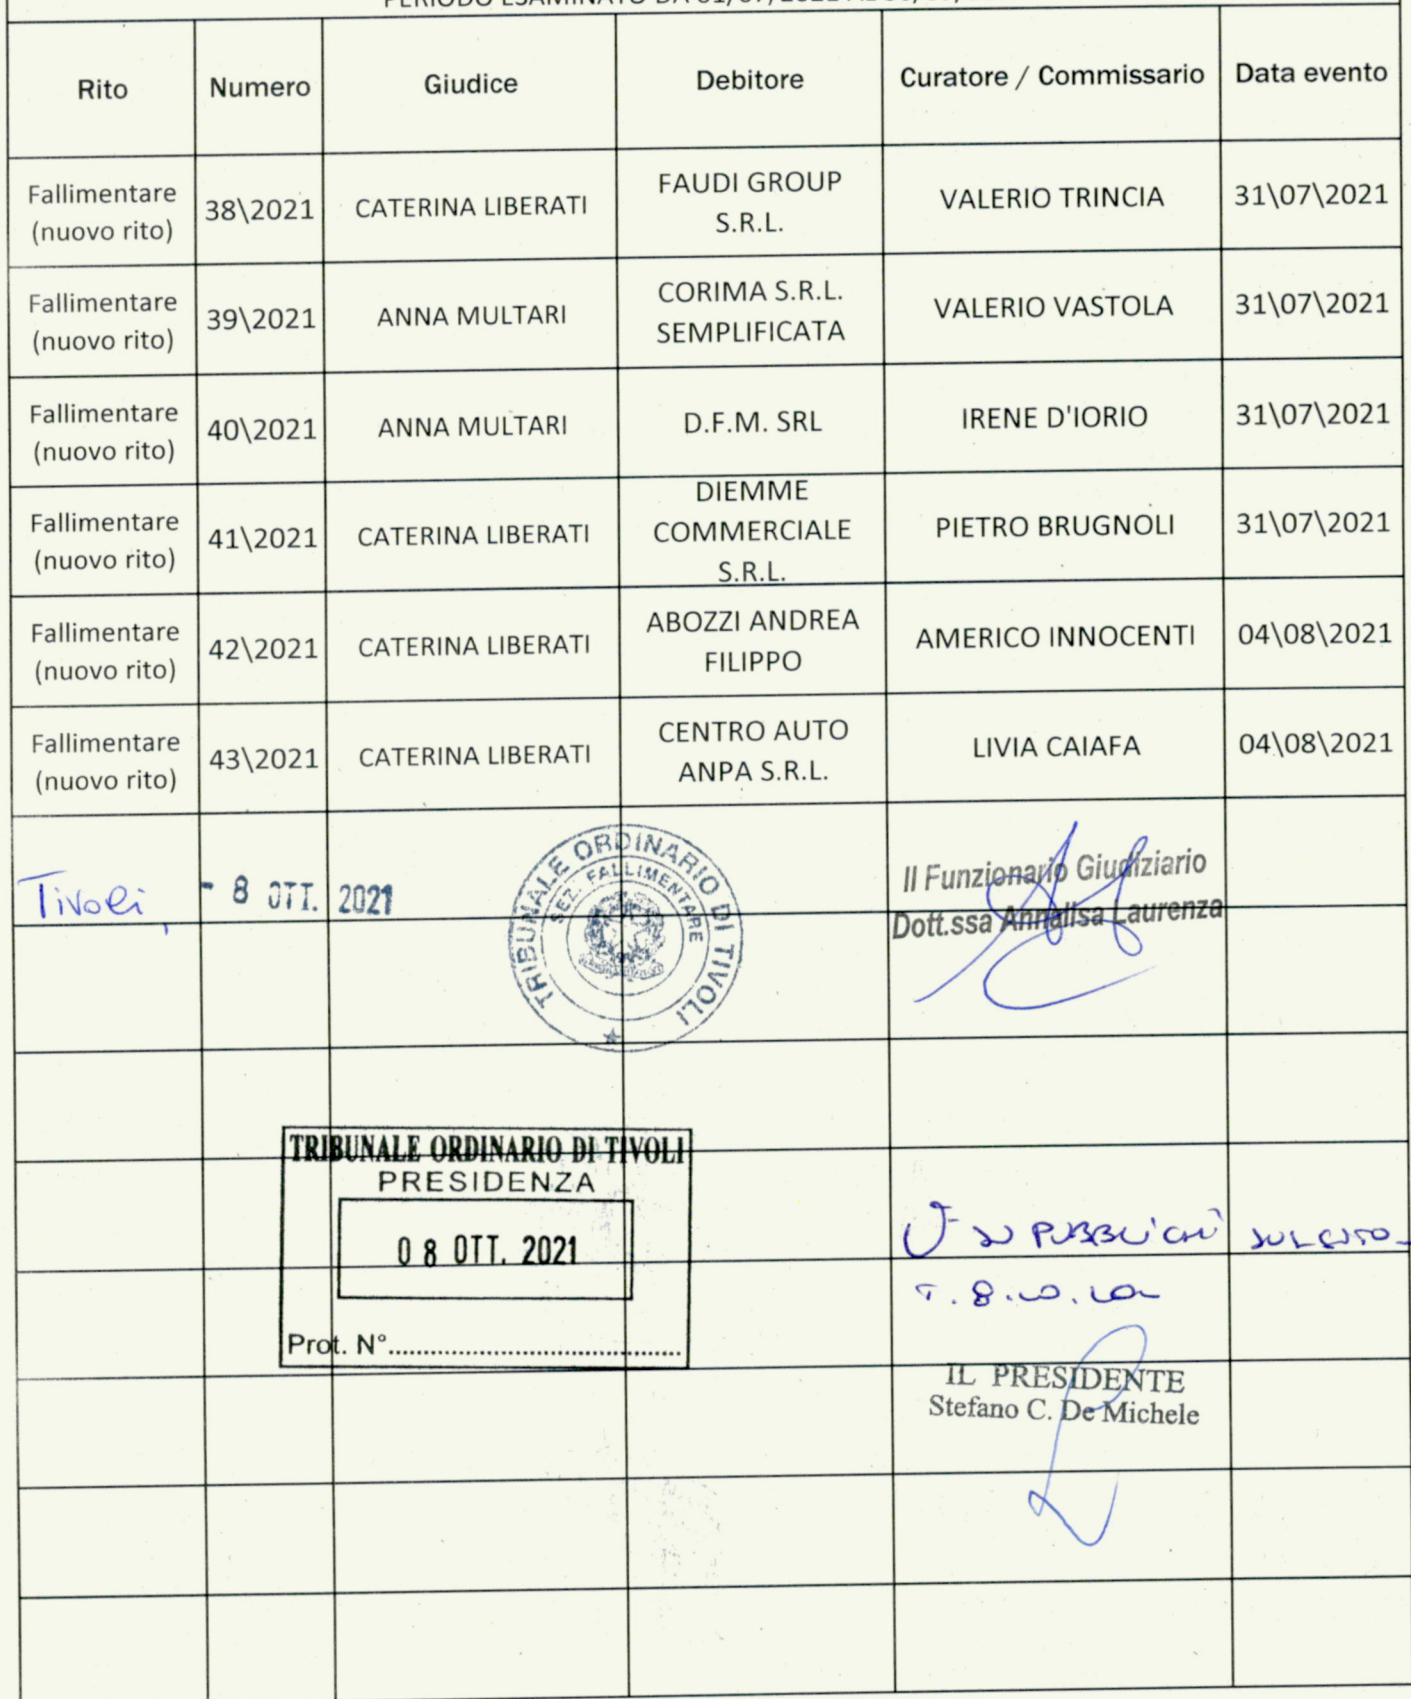 PERIODO ESAMINATO DA 01/07/2021
Rito Numero Giudice Debitore Curatore / Commissario Data evento
Fallimentare (nuovo rito) 38\2021 CATERINA LIBERATI FAUDI GROUP S.R.L. VALERIO TRINCIA 31\07\2021
Fallimentare (nuovo rito) 39\2021 ANNA MULTARI CORIMA S.R.L. SEMPLIFICATA VALERIO VASTOLA 31\07\2021
Fallimentare (nuovo rito) 40\2021 ANNA MULTARI D.F.M. SRL IRENE D'IORIO 31\07\2021
Fallimentare (nuovo rito) 41\2021 CATERINA LIBERATI DIEMME COMMERCIALE S.R.L. PIETRO BRUGNOLI 31\07\2021
Fallimentare (nuovo rito) 42\2021 CATERINA LIBERATI ABOZZI ANDREA FILIPPO AMERICO INNOCENTI 04\08\2021
Fallimentare (nuovo rito) 43\2021 CATERINA LIBERATI CENTRO AUTO ANPA S.R.L. LIVIA CAIAFA 04\08\2021
Tivoli, - 8 OTT. 2021
TRIBUNALE ORDINARIO DI TIVOLI
SEZ. FALLIMENTARE
Il Funzionario Giudiziario
Dott.ssa Annalisa Laurenza
TRIBUNALE ORDINARIO DI TIVOLI
PRESIDENZA
08 OTT. 2021
Prot. N°
PUBBLICHI SUL SITO
IL PRESIDENTE
Stefano C. De Michele